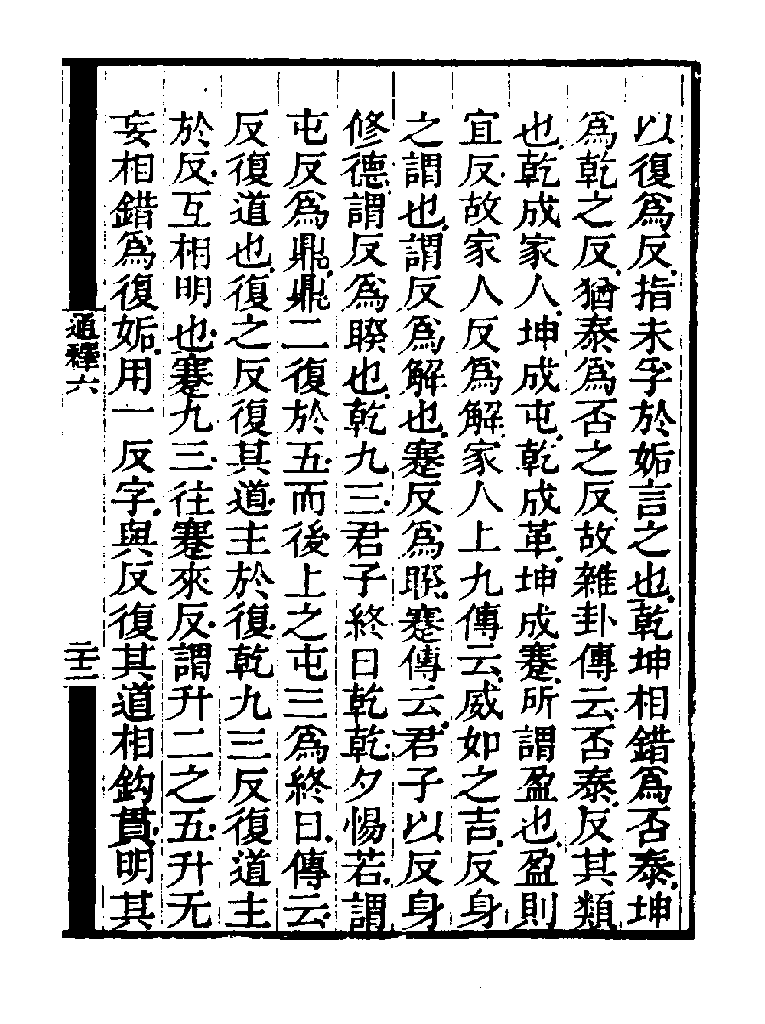 以復爲反指未孚於姤言之也乾坤相錯爲否泰坤
爲乾之反猶泰爲否之反故雜卦傳云否泰反其類
也乾成家人坤成屯乾成革坤成蹇所謂盈也盈則
宜反故家人反爲解家人上九傳云威如之吉反身
之謂也謂反爲解也蹇反爲睽蹇傳云君子以反身
修德謂反爲睽也乾九三君子終日乾乾夕惕若謂
屯反爲鼎鼎二復於五而後上之屯三爲終日傳云
反復道也復之反復其道主於復乾九三反復道主
於反互相明也蹇九三往蹇來反謂升二之五升无
妄相錯爲復姤用一反字與反復其道相鈎貫明其
通釋六
二十二